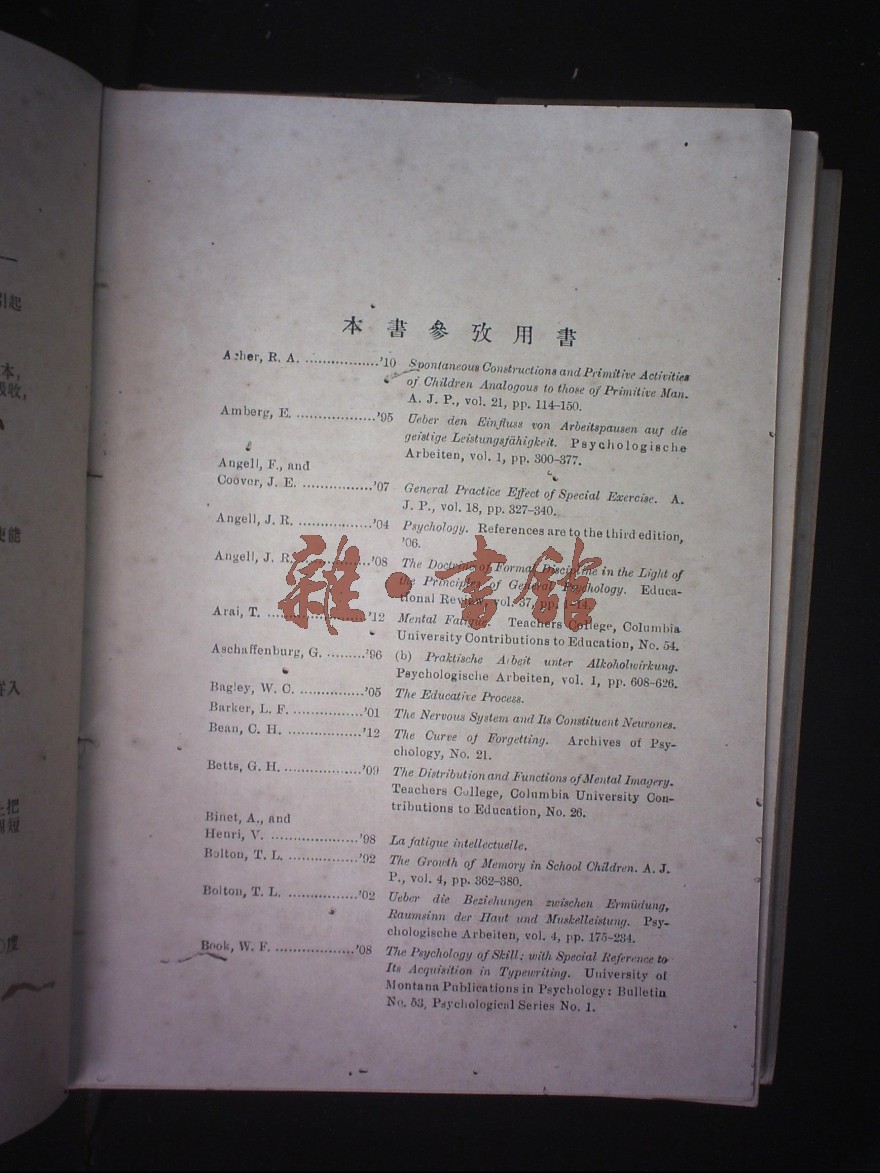 本書參攷用書
Acher, R. A. ..................'10 Spontaneous Constructions and Primitive Activities
of Children Analogous to those of Primitive Man.
A. J. P., vol. 21, pp. 114–150.
Amberg, E. ..................'95 Ueber den Einfluss von Arbeitspausen auf die
geistige Leistungsfähigkeit. Psychologische
Arbeiten, vol. 1, pp. 300–377.
Angell, F., and
Coover, J. E. ................'07 General Practice Effect of Special Exercise. A.
J. P., vol. 18, pp. 327–340.
Angell, J. R. .................'04 Psychology. References are to the third edition,
'06.
Angell, J. R. .................'08 The Doctrine of Formal Discipline in the Light of
the Principles of General Psychology. Educa-
tional Review, vol. 37, pp. 1–14.
Arai, T. .......................'12 Mental Fatigue. Teachers College, Columbia
University Contributions to Education, No. 54.
Aschaffenburg, G. .........'96 (b) Praktische Arbeit unter Alkoholwirkung.
Psychologische Arbeiten, vol. 1, pp. 608–626.
Bagley, W. C. ...............'05 The Educative Process.
Barker, L. F. ................'01 The Nervous System and Its Constituent Neurones.
Bean, C. H. .................'12 The Curve of Forgetting. Archives of Psy-
chology, No. 21.
Betts, G. H. ..................'09 The Distribution and Functions of Mental Imagery.
Teachers College, Columbia University Con-
tributions to Education, No. 26.
Binet, A., and
Henri, V. ....................'98 La fatigue intellectuelle.
Bolton, T. L. ................'92 The Growth of Memory in School Children. A. J.
P., vol. 4, pp. 362–380.
Bolton, T. L. ................'02 Ueber die Beziehungen zwischen Ermüdung,
Raumsinn der Haut und Muskelleistung. Psy-
chologische Arbeiten, vol. 4, pp. 175–234.
Book, W. F. ..................'08 The Psychology of Skill: with Special Reference to
Its Acquisition in Typewriting. University of
Montana Publications in Psychology: Bulletin
No. 53, Psychological Series No. 1.
雜·書館
引起
本,
吸收,